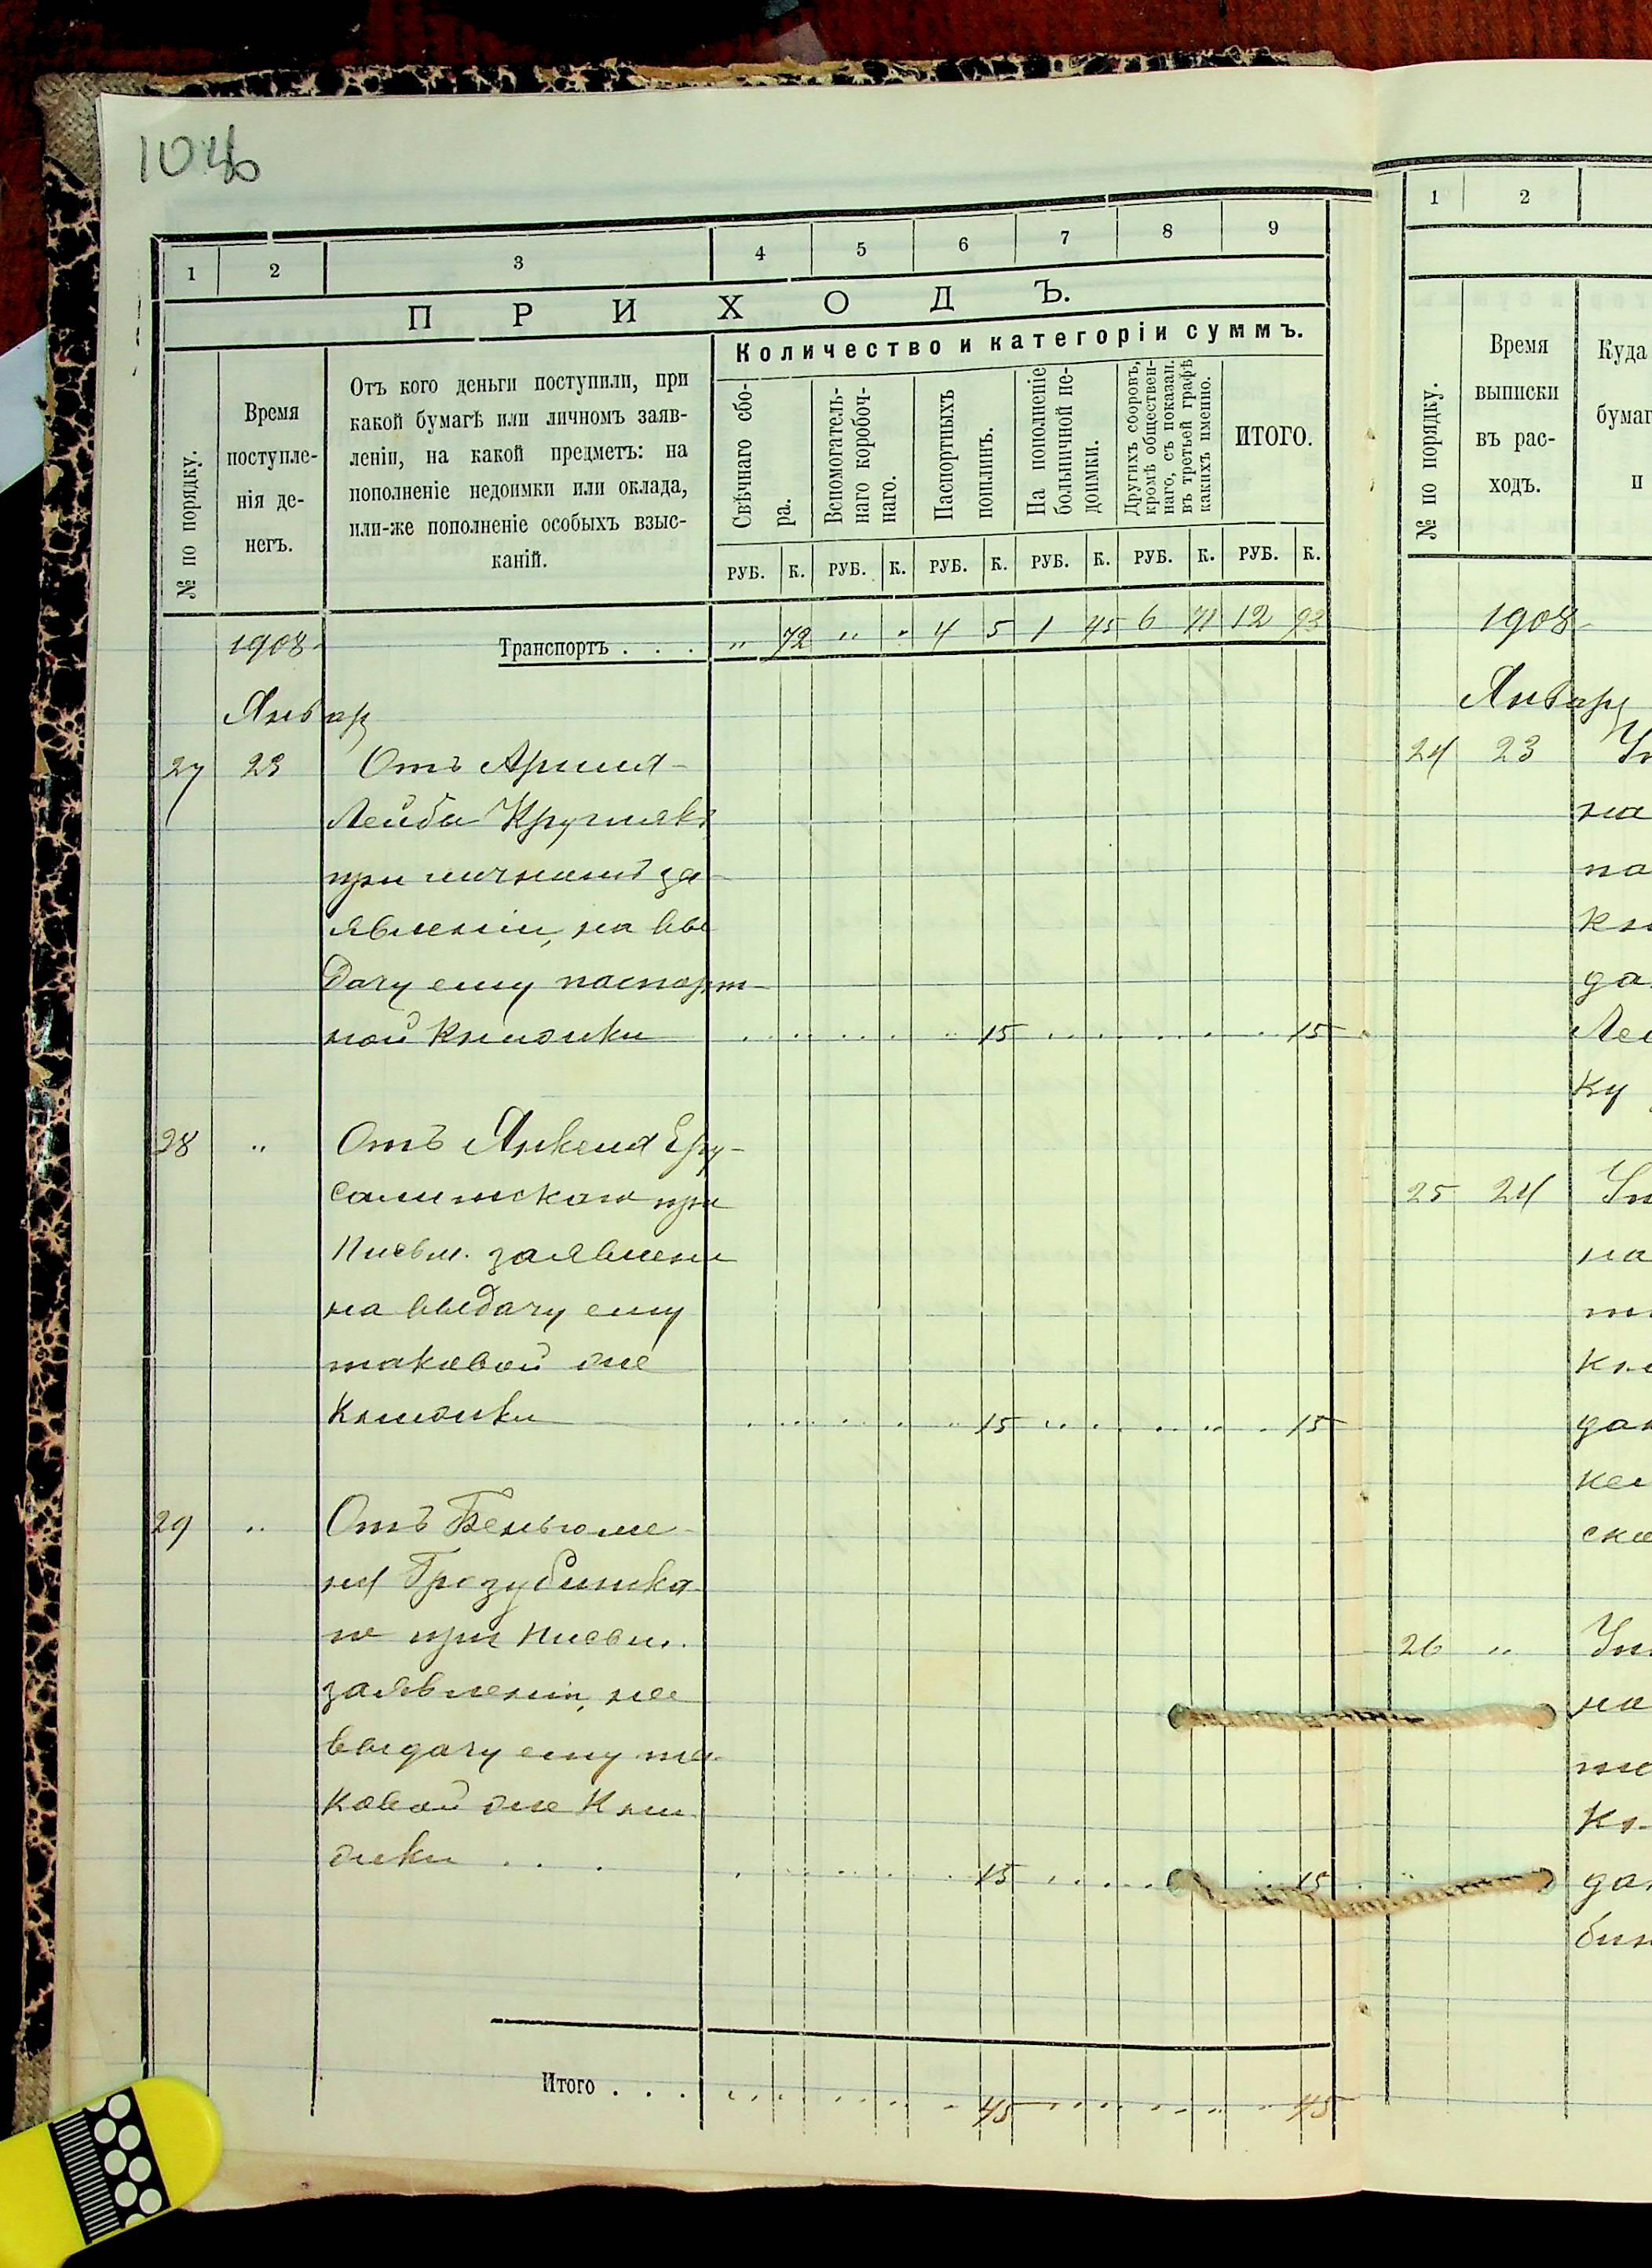 1 2 3 4 5 6 7 8 9
ПРИХОДЪ.
№ по порядку.
Время
поступле-
нія де-
негъ.
Отъ кого деньги поступили, при
какой бумагѣ или личномъ заяв-
леніи, на какой предметъ: на
пополненіе недоимки или оклада,
или-же пополненіе особыхъ взыс-
каній.
Количество и категоріи суммъ.
Свѣчнаго сбо-
ра.
Вспомогатель-
наго коробоч-
наго.
Паспортныхъ
пошлинъ.
На пополненіе
больничной не-
доимки.
Другихъ сборовъ,
кромѣ обществен-
наго, съ показан.
въ третьей графѣ
какихъ именно.
ИТОГО.
РУБ. К. РУБ. К. РУБ. К. РУБ. К. РУБ. К. РУБ. К.
1908 Транспортъ . . . " 72 " " 4 5 1 45 6 71 12 93
Январ
27 23 Отъ
Лейбы Кругляка
при личномъ за-
явленіи, на вы
дачу ему паспорт-
ной книжки 15 15
28 " Отъ Янкеля Еру-
салимскаго при
письм. заявлени
на выдачу ему
таковой же
книжки 15 15
29 " Отъ Беньоме-
на Грозубинска-
го при письм.
заявленіи, на
выдачу ему та-
ковой же кни
жки . . . 15 15
Итого . . . 45 45
1 2
№ по порядку.
Время
выписки
въ рас-
ходъ.
Куда
бумаг
и
1908
Январ
24 23
на
па
кн
да
Лей
ку
25 24
на
та
кн
дан
кел
ска
26 "
на
та
кн
дан
бин